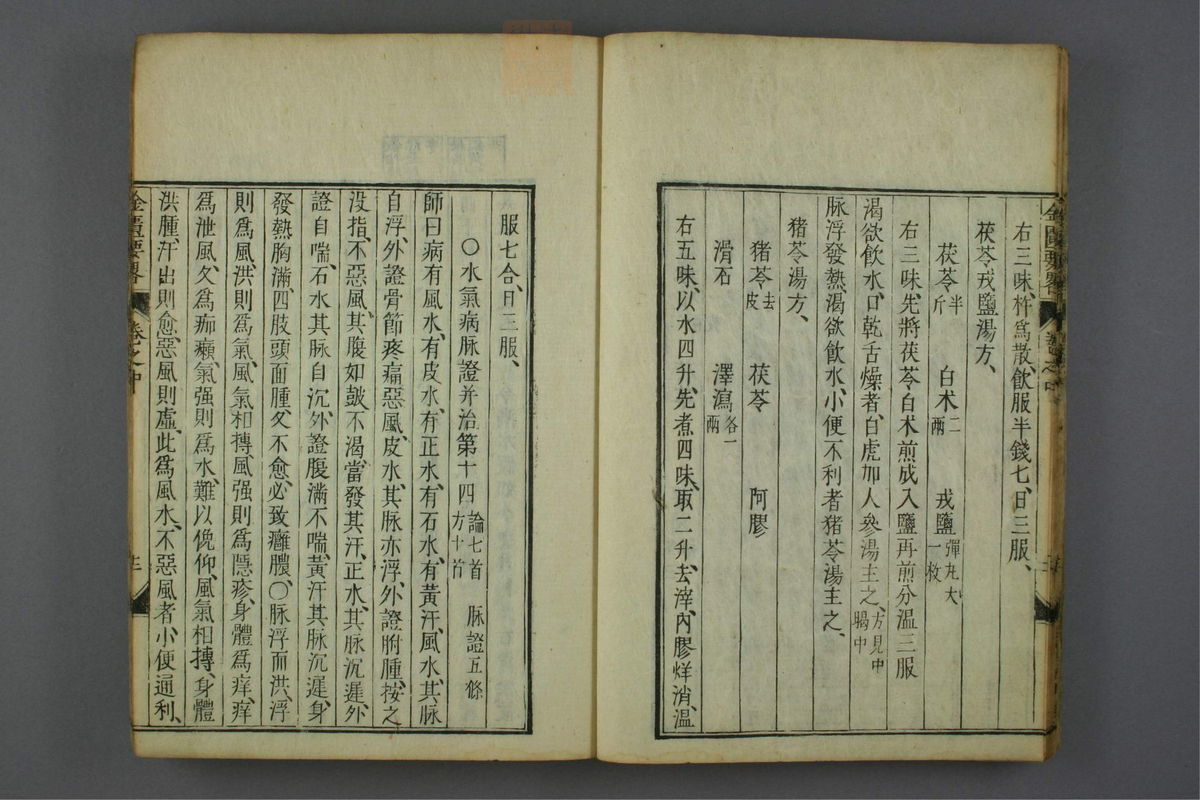 右三味、杵爲散、飲服半錢七、日三服、
茯苓戎鹽湯方、
茯苓半斤 白朮二兩 戎鹽彈丸大一枚
右三味先將茯苓白朮煎成入鹽再煎分溫三服
渴欲飲水、口乾舌燥者、白虎加人參湯主之、方見中暍中
脉浮發熱、渴欲飲水、小便不利者、猪苓湯主之、
猪苓湯方、
猪苓去皮 茯苓 阿膠
滑石 澤瀉各一兩
右五味、以水四升、先煮四味、取二升、去滓、內膠烊消、溫
服七合、日三服、
○水氣病脉證并治第十四 論七首 脉證五條 方十首
師曰病有風水、有皮水、有正水、有石水、有黃汗、風水、其脉
自浮、外證骨節疼痛、惡風、皮水、其脉亦浮、外證胕腫、按之
没指、不惡風、其腹如皷、不渴、當發其汗、正水、其脉沉遲、外
證自喘、石水其脉自沉、外證腹滿不喘、黃汗其脉沉遲、身
發熱胸滿、四肢頭面腫、久不愈、必致癰膿、○脉浮而洪、浮
則爲風、洪則爲氣、風氣相摶、風强則爲隱疹、身體爲痒、痒
爲泄風、久爲痂癩、氣强則爲水、難以俛仰、風氣相摶、身體
洪腫、汗出則愈、惡風則虛、此爲風水、不惡風者、小便通利、
金匱要畧 卷之中